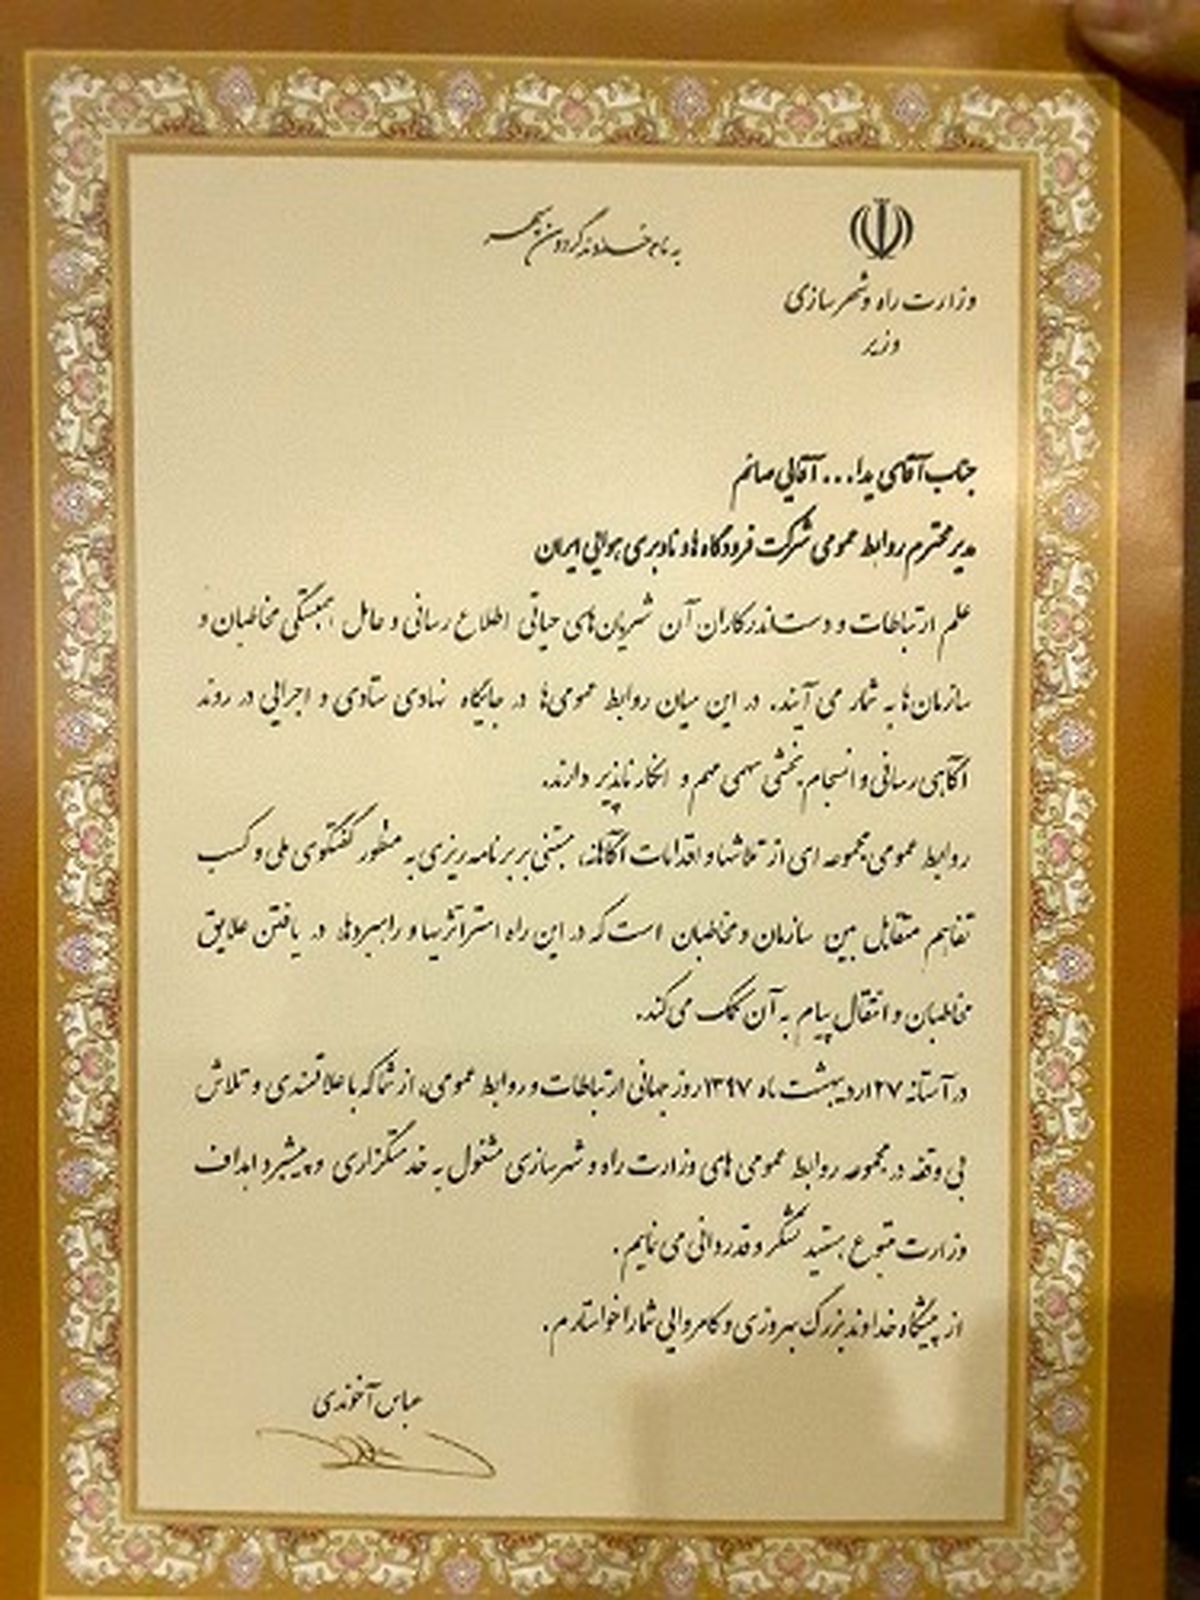 به نام خداوند گردون سپهر
وزارت راه و شهرسازی
وزیر
جناب آقای یدا... آقایی صائم
مدیر محترم روابط عمومی شرکت فرودگاه ها و ناوبری هوایی ایران
علم ارتباطات و دست‌اندرکاران آن شریان‌های حیاتی اطلاع رسانی و عامل همبستگی مخاطبان و
سازمان‌ها به شمار می آیند. در این میان روابط عمومی‌ها در جایگاه نهادی ستادی و اجرایی در روند
آگاهی رسانی و انسجام بخشی سهمی مهم و انکار ناپذیر دارند.
روابط عمومی مجموعه ای از تلاشها و اقدامات آگاهانه، مبتنی بر برنامه ریزی به منظور گفتگوی ملی و کسب
تفاهم متقابل بین سازمان و مخاطبان است که در این راه استراتژیها و راهبردها در یافتن علایق
مخاطبان و انتقال پیام به آن کمک می کند.
در آستانه ۲۷ اردیبهشت ماه ۱۳۹۷ روز جهانی ارتباطات و روابط عمومی، از شما که با علاقمندی و تلاش
بی وقفه در مجموعه روابط عمومی های وزارت راه و شهرسازی مشغول به خدمتگزاری و پیشبرد اهداف
وزارت متبوع هستید تشکر و قدردانی می نمایم.
از پیشگاه خداوند بزرگ بهروزی و کامروایی شما را خواستارم.
عباس آخوندی